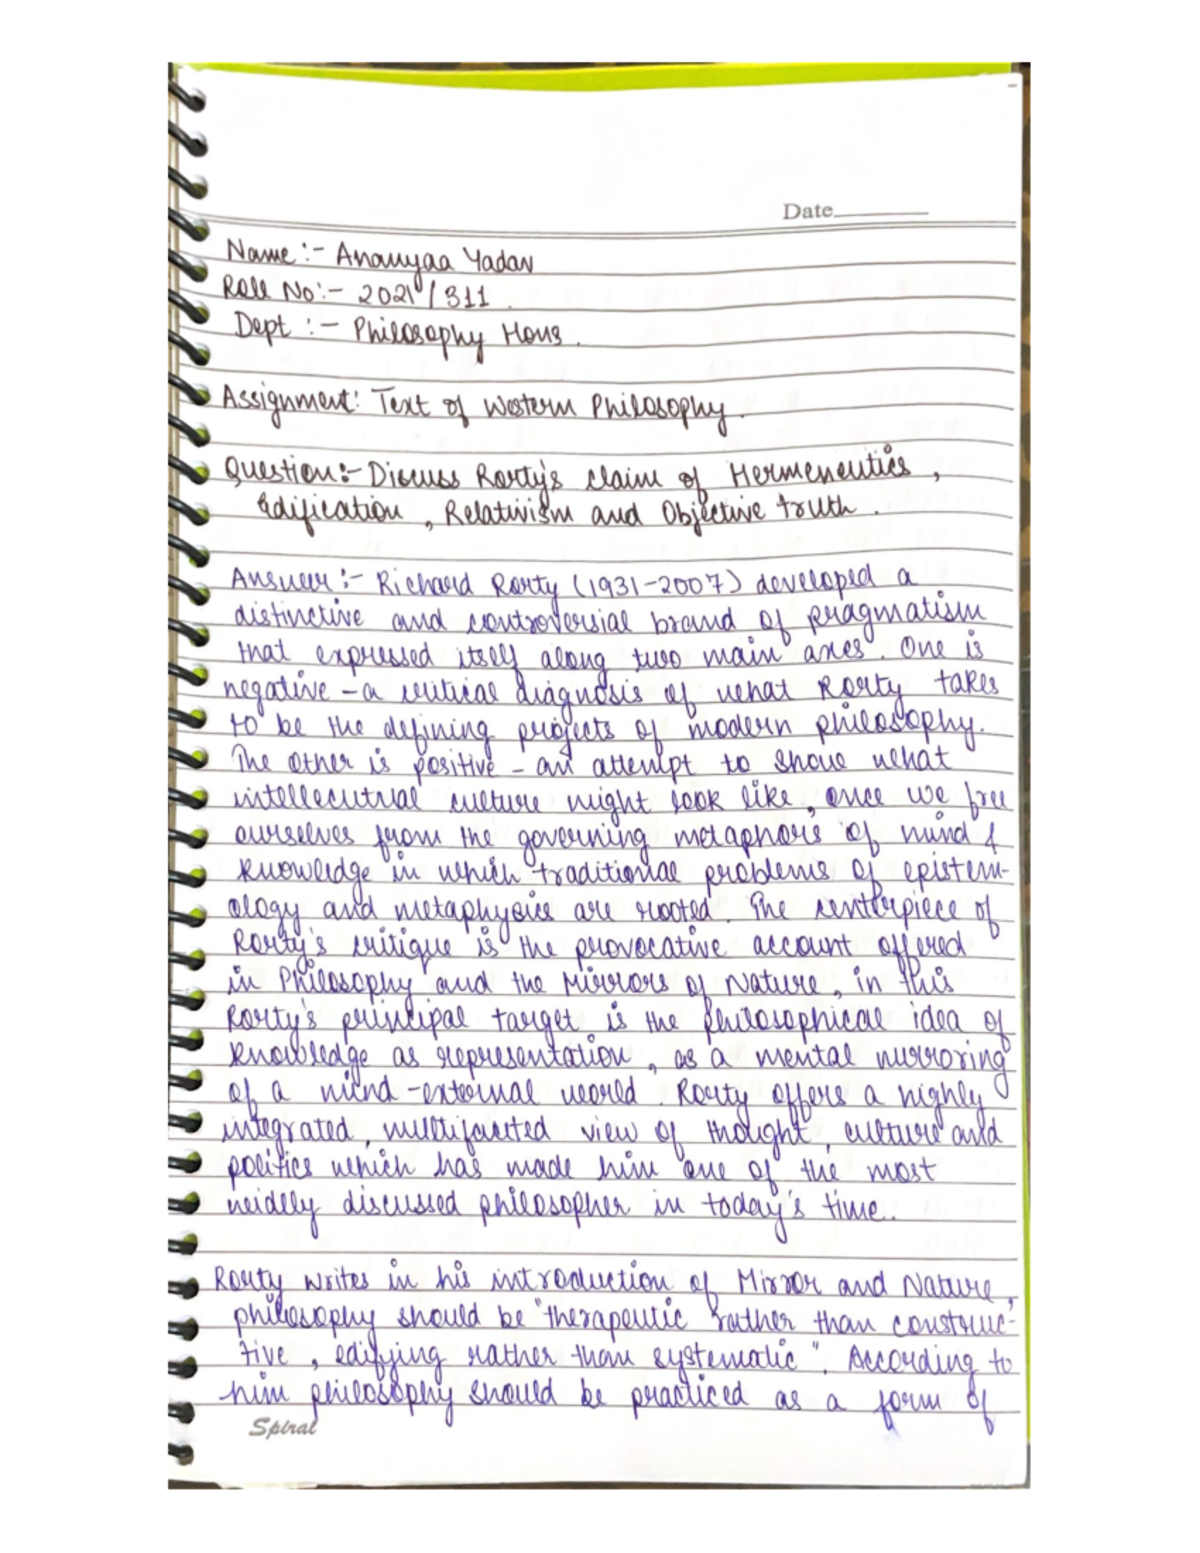 Date
Name :- Ananyaa Yadav
Roll No :- 2021/311
Dept :- Philosophy Hons.
Assignment: Text of Western Philosophy.
Question:- Discuss Rorty's claim of Hermeneutics,
Edification, Relativism and Objective truth.
Answer :- Richard Rorty (1931-2007) developed a
distinctive and controversial brand of pragmatism
that expressed itself along two main axes. One is
negative - a critical diagnosis of what Rorty takes
to be the defining projects of modern philosophy.
The other is positive - an attempt to show what
intellecutrual culture might look like, once we free
ourselves from the governing metaphors of mind &
knowledge in which traditional problems of epistem-
ology and metaphysics are rooted. The centerpiece of
Rorty's critique is the provocative account offered
in Philosophy and the Mirrors of Nature, in this
Rorty's principal target is the philosophical idea of
knowledge as representation, as a mental mirroring
of a mind-external world. Rorty offers a highly
integrated, multifaceted view of thought, culture and
politics which has made him one of the most
widely discussed philosopher in today's time.
Rorty writes in his introduction of Mirror and Nature,
philosophy should be "therapeutic rather than construc-
tive, edifying rather than systematic". According to
him philosophy should be practiced as a form of
Spiral